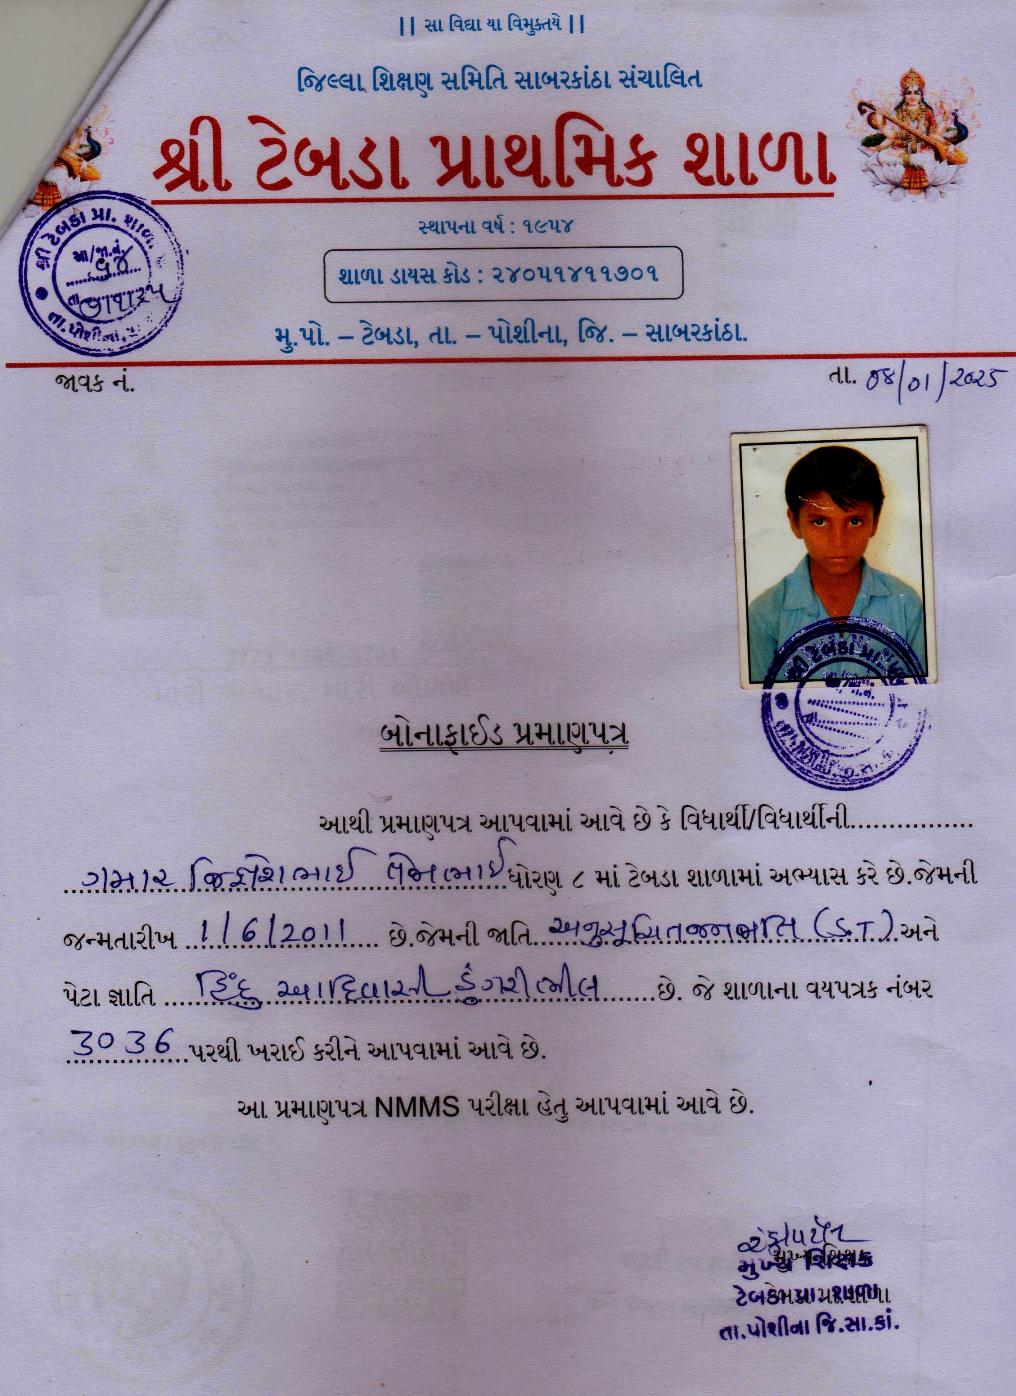 || સા વિદ્યા યા વિમુક્તયે ||
જિલ્લા શિક્ષણ સમિતિ સાબરકાંઠા સંચાલિત
શ્રી ટેબડા પ્રાથમિક શાળા
સ્થાપના વર્ષ : ૧૯૫૪
શાળા ડાયસ કોડ : ૨૪૦૫૧૪૧૧૭૦૧
મુ.પો. – ટેબડા, તા. – પોશીના, જિ. – સાબરકાંઠા.
શ્રી ટેબડા પ્રા. શાળા
આ/જા.નં.
તા.
તા.પોશીના,
જાવક નં.
તા. 04/01/2025
બોનાફાઈડ પ્રમાણપત્ર
આથી પ્રમાણપત્ર આપવામાં આવે છે કે વિધાર્થી/વિધાર્થીની..................
ગમાર જિજ્ઞેશભાઈ ધોરણ ૮ માં ટેબડા શાળામાં અભ્યાસ કરે છે.જેમની
જન્મતારીખ 1/6/2011 છે.જેમની જાતિ અનુસૂચિતજનજાતિ (S.T) અને
પેટા જ્ઞાતિ હિંદુ આદિવાસી ડુંગરીભીલ છે. જે શાળાના વયપત્રક નંબર
3036 પરથી ખરાઈ કરીને આપવામાં આવે છે.
આ પ્રમાણપત્ર NMMS પરીક્ષા હેતુ આપવામાં આવે છે.
મુખ્ય શિક્ષક
ટેબડા પ્રા. શાળા
તા.પોશીના જિ.સા.કાં.